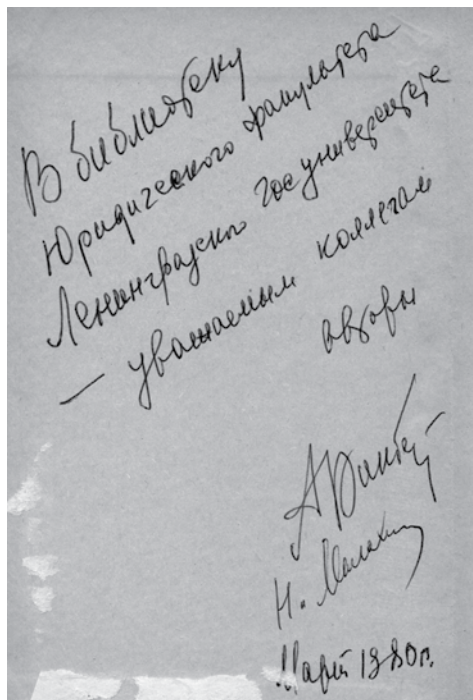 В библиотеку
Юридического факультета
Ленинградского госуниверситета
— уважаемым коллегам
авторы
Н.
Март 1980г.